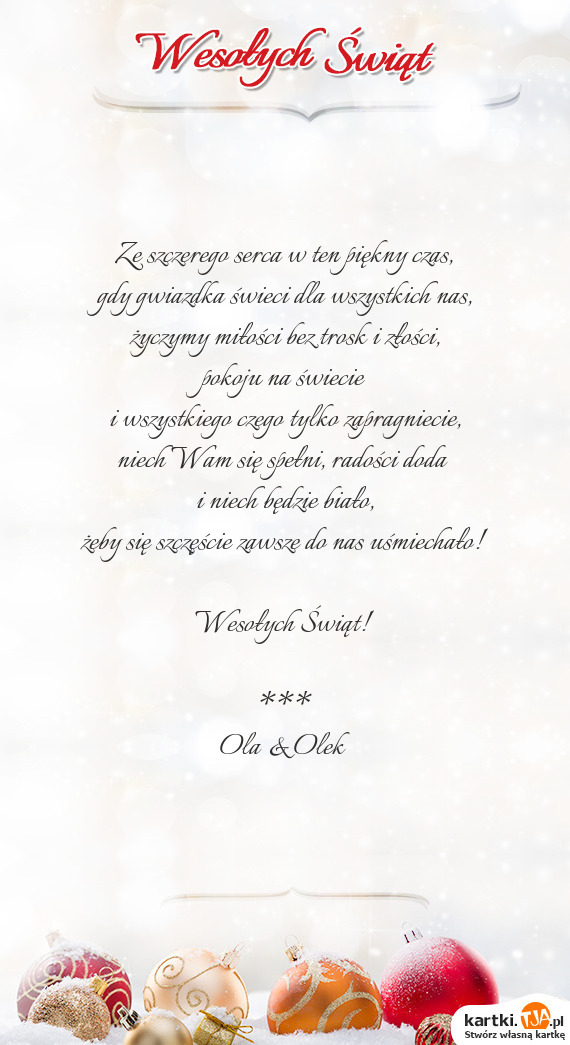 Wesołych Świąt
Ze szczerego serca w ten piękny czas,
gdy gwiazdka świeci dla wszystkich nas,
życzymy miłości bez trosk i złości,
pokoju na świecie
i wszystkiego czego tylko zapragniecie,
niech Wam się spełni, radości doda
i niech będzie biało,
żeby się szczęście zawsze do nas uśmiechało!
Wesołych Świąt!
***
Ola & Olek
kartki.TJA.pl
Stwórz własną kartkę